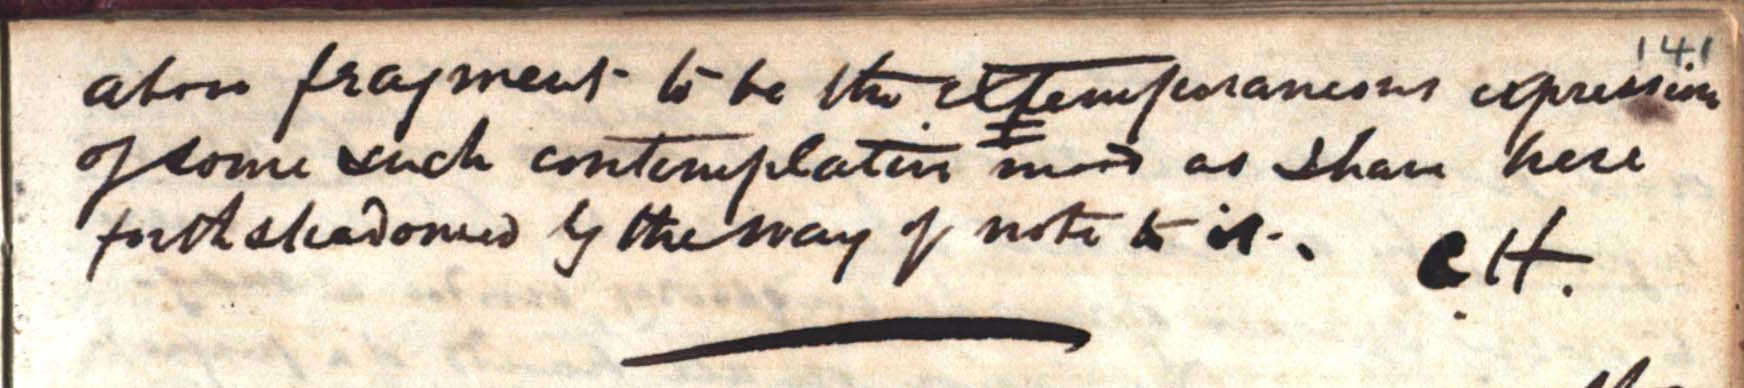 141
above fragment to be the extemporaneous expression
of some such contemplative mood as I have here
forthshadowed by the way of note to it.
C.H.